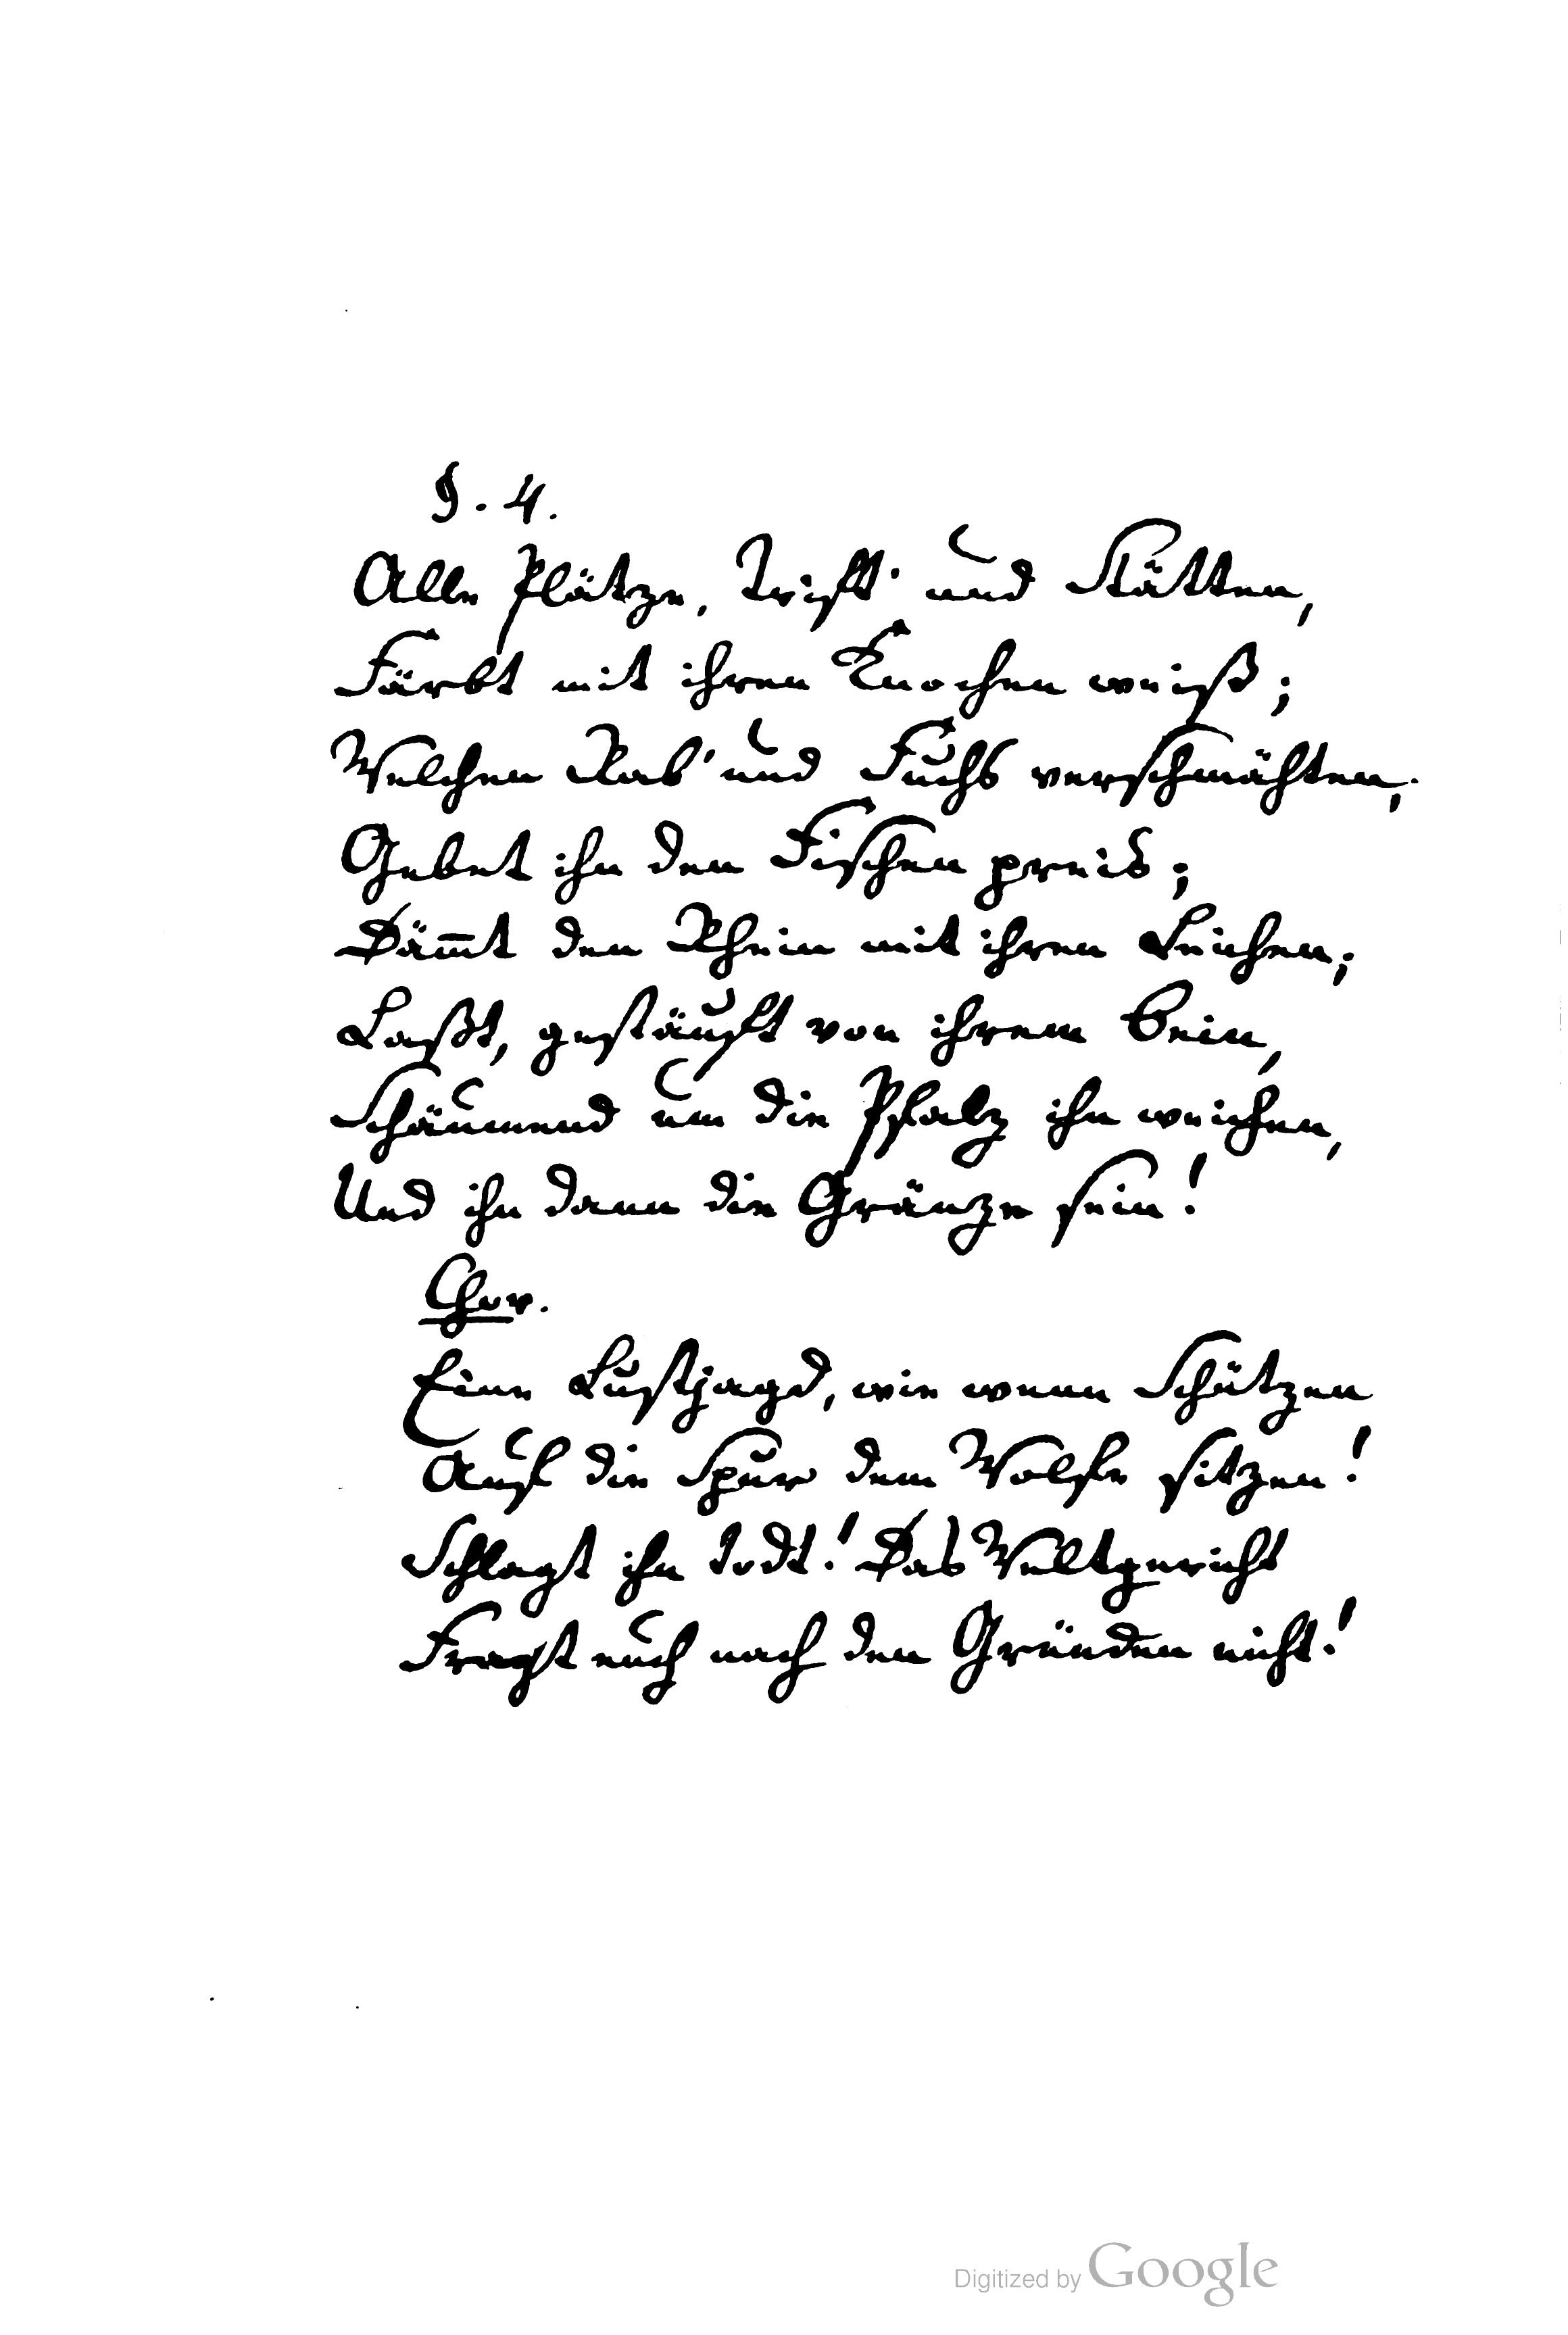 §. 4.
Alle Plätze, Trift' und Stätten,
Färbt mit ihren Knochen weiß;
Welchen Rab' und Fuchs verschmähten,
Gebet ihn den Fischen preis;
Däm̄t den Rhein mit ihren Leichen;
Laßt, gestäuft von ihrem Bein,
Schäumend um die Pfalz ihn weichen,
Und ihn dann die Gränze sein!
Chor.
Eine Lustjagd, wie wenn Schützen
Auf die Spur dem Wolfe sitzen!
Schlagt ihn todt! Das Weltgericht
Fragt euch nach den Gründen nicht!
Digitized by Google